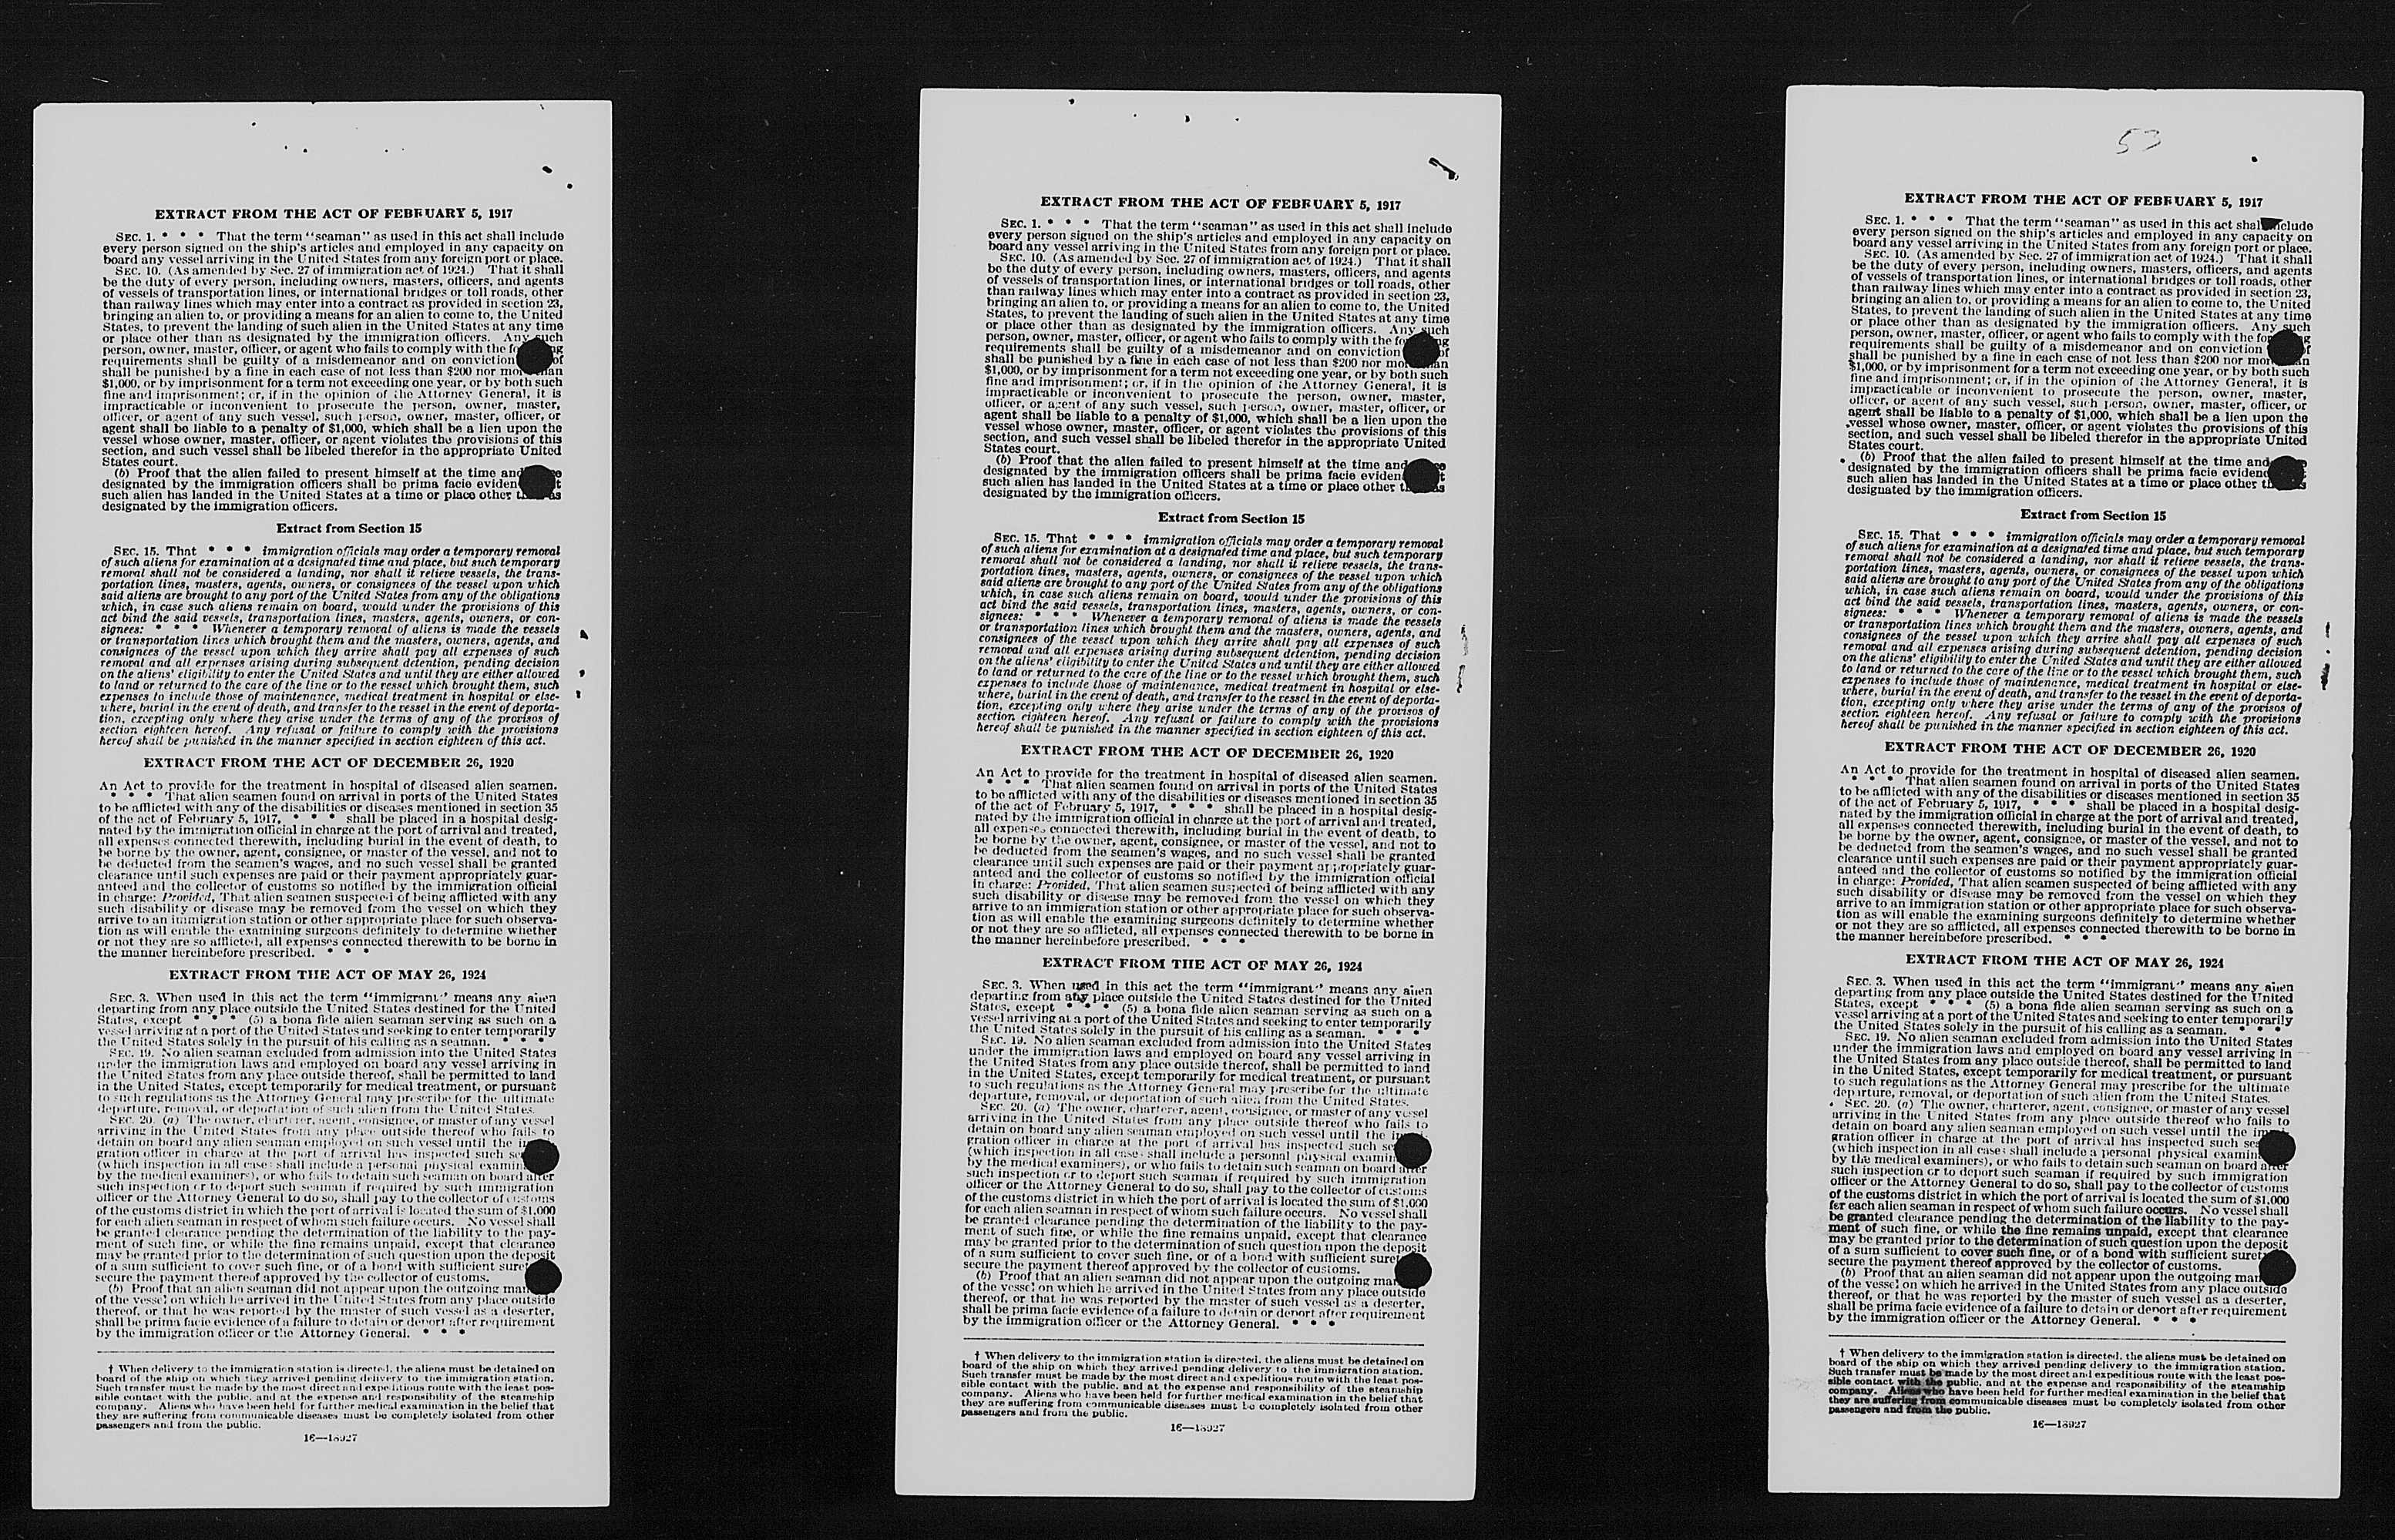 EXTRACT FROM THE ACT OF FEBRUARY 5, 1917
SEC. 1. * * * That the term "seaman" as used in this act shall include
every person signed on the ship's articles and employed in any capacity on
board any vessel arriving in the United States from any foreign port or place.
SEC. 10. (As amended by Sec. 27 of immigration act of 1924.) That it shall
be the duty of every person, including owners, masters, officers, and agents
of vessels of transportation lines, or international bridges or toll roads, other
than railway lines which may enter into a contract as provided in section 23,
bringing an alien to, or providing a means for an alien to come to, the United
States, to prevent the landing of such alien in the United States at any time
or place other than as designated by the immigration officers. Any such
person, owner, master, officer, or agent who fails to comply with the
requirements shall be guilty of a misdemeanor and on conviction
shall be punished by a fine in each case of not less than $200 nor
$1,000, or by imprisonment for a term not exceeding one year, or by both such
fine and imprisonment; or, if in the opinion of the Attorney General, it is
impracticable or inconvenient to prosecute the person, owner, master,
officer, or agent of any such vessel, such person, owner, master, officer, or
agent shall be liable to a penalty of $1,000, which shall be a lien upon the
vessel whose owner, master, officer, or agent violates the provisions of this
section, and such vessel shall be libeled therefor in the appropriate United
States court.
(b) Proof that the alien failed to present himself at the time and
designated by the immigration officers shall be prima facie
such alien has landed in the United States at a time or place other
designated by the immigration officers.
Extract from Section 15
SEC. 15. That * * * immigration officials may order a temporary removal
of such aliens for examination at a designated time and place, but such temporary
removal shall not be considered a landing, nor shall it relieve vessels, the trans-
portation lines, masters, agents, owners, or consignees of the vessel upon which
said aliens are brought to any port of the United States from any of the obligations
which, in case such aliens remain on board, would under the provisions of this
act bind the said vessels, transportation lines, masters, agents, owners, or con-
signees: * * * Whenever a temporary removal of aliens is made the vessels
or transportation lines which brought them and the masters, owners, agents, and
consignees of the vessel upon which they arrive shall pay all expenses of such
removal and all expenses arising during subsequent detention, pending decision
on the aliens' eligibility to enter the United States and until they are either allowed
to land or returned to the care of the line or to the vessel which brought them, such
expenses to include those of maintenance, medical treatment in hospital or else-
where, burial in the event of death, and transfer to the vessel in the event of deporta-
tion, excepting only where they arise under the terms of any of the provisos of
section eighteen hereof. Any refusal or failure to comply with the provisions
hereof shall be punished in the manner specified in section eighteen of this act.
EXTRACT FROM THE ACT OF DECEMBER 26, 1920
An Act to provide for the treatment in hospital of diseased alien seamen.
* * * That alien seamen found on arrival in ports of the United States
to be afflicted with any of the disabilities or diseases mentioned in section 35
of the act of February 5, 1917, * * * shall be placed in a hospital desig-
nated by the immigration official in charge at the port of arrival and treated,
all expenses connected therewith, including burial in the event of death, to
be borne by the owner, agent, consignee, or master of the vessel, and not to
be deducted from the seamen's wages, and no such vessel shall be granted
clearance until such expenses are paid or their payment appropriately guar-
anteed and the collector of customs so notified by the immigration official
in charge: Provided, That alien seamen suspected of being afflicted with any
such disability or disease may be removed from the vessel on which they
arrive to an immigration station or other appropriate place for such observa-
tion as will enable the examining surgeons definitely to determine whether
or not they are so afflicted, all expenses connected therewith to be borne in
the manner hereinbefore prescribed. * * *
EXTRACT FROM THE ACT OF MAY 26, 1924
SEC. 3. When used in this act the term "immigrant" means any alien
departing from any place outside the United States destined for the United
States, except * * * (5) a bona fide alien seaman serving as such on a
vessel arriving at a port of the United States and seeking to enter temporarily
the United States solely in the pursuit of his calling as a seaman. * * *
SEC. 19. No alien seaman excluded from admission into the United States
under the immigration laws and employed on board any vessel arriving in
the United States from any place outside thereof, shall be permitted to land
in the United States, except temporarily for medical treatment, or pursuant
to such regulations as the Attorney General may prescribe for the ultimate
departure, removal, or deportation of such alien from the United States.
SEC. 20. (a) The owner, charterer, agent, consignee, or master of any vessel
arriving in the United States from any place outside thereof who fails to
detain on board any alien seaman employed on such vessel until the
gration officer in charge at the port of arrival has inspected such
(which inspection in all cases shall include a personal physical
by the medical examiners), or who fails to detain such seaman on board after
such inspection or to deport such seaman if required by such immigration
officer or the Attorney General to do so, shall pay to the collector of customs
of the customs district in which the port of arrival is located the sum of $1,000
for each alien seaman in respect of whom such failure occurs. No vessel shall
be granted clearance pending the determination of the liability to the pay-
ment of such fine, or while the fine remains unpaid, except that clearance
may be granted prior to the determination of such question upon the deposit
of a sum sufficient to cover such fine, or of a bond with sufficient
secure the payment thereof approved by the collector of customs.
(b) Proof that an alien seaman did not appear upon the outgoing
of the vessel on which he arrived in the United States from any place outside
thereof, or that he was reported by the master of such vessel as a deserter,
shall be prima facie evidence of a failure to detain or deport after requirement
by the immigration officer or the Attorney General. * * *
† When delivery to the immigration station is directed, the aliens must be detained on
board of the ship on which they arrived pending delivery to the immigration station.
Such transfer must be made by the most direct and expeditious route with the least pos-
sible contact with the public, and at the expense and responsibility of the steamship
company. Aliens who have been held for further medical examination in the belief that
they are suffering from communicable diseases must be completely isolated from other
passengers and from the public.
16—18927
EXTRACT FROM THE ACT OF FEBRUARY 5, 1917
SEC. 1. * * * That the term "seaman" as used in this act shall include
every person signed on the ship's articles and employed in any capacity on
board any vessel arriving in the United States from any foreign port or place.
SEC. 10. (As amended by Sec. 27 of immigration act of 1924.) That it shall
be the duty of every person, including owners, masters, officers, and agents
of vessels of transportation lines, or international bridges or toll roads, other
than railway lines which may enter into a contract as provided in section 23,
bringing an alien to, or providing a means for an alien to come to, the United
States, to prevent the landing of such alien in the United States at any time
or place other than as designated by the immigration officers. Any such
person, owner, master, officer, or agent who fails to comply with the
requirements shall be guilty of a misdemeanor and on conviction of
shall be punished by a fine in each case of not less than $200 nor
$1,000, or by imprisonment for a term not exceeding one year, or by both such
fine and imprisonment; or, if in the opinion of the Attorney General, it is
impracticable or inconvenient to prosecute the person, owner, master,
officer, or agent of any such vessel, such person, owner, master, officer, or
agent shall be liable to a penalty of $1,000, which shall be a lien upon the
vessel whose owner, master, officer, or agent violates the provisions of this
section, and such vessel shall be libeled therefor in the appropriate United
States court.
(b) Proof that the alien failed to present himself at the time and
designated by the immigration officers shall be prima facie
such alien has landed in the United States at a time or place other
designated by the immigration officers.
Extract from Section 15
SEC. 15. That * * * immigration officials may order a temporary removal
of such aliens for examination at a designated time and place, but such temporary
removal shall not be considered a landing, nor shall it relieve vessels, the trans-
portation lines, masters, agents, owners, or consignees of the vessel upon which
said aliens are brought to any port of the United States from any of the obligations
which, in case such aliens remain on board, would under the provisions of this
act bind the said vessels, transportation lines, masters, agents, owners, or con-
signees: * * * Whenever a temporary removal of aliens is made the vessels
or transportation lines which brought them and the masters, owners, agents, and
consignees of the vessel upon which they arrive shall pay all expenses of such
removal and all expenses arising during subsequent detention, pending decision
on the aliens' eligibility to enter the United States and until they are either allowed
to land or returned to the care of the line or to the vessel which brought them, such
expenses to include those of maintenance, medical treatment in hospital or else-
where, burial in the event of death, and transfer to the vessel in the event of deporta-
tion, excepting only where they arise under the terms of any of the provisos of
section eighteen hereof. Any refusal or failure to comply with the provisions
hereof shall be punished in the manner specified in section eighteen of this act.
EXTRACT FROM THE ACT OF DECEMBER 26, 1920
An Act to provide for the treatment in hospital of diseased alien seamen.
* * * That alien seamen found on arrival in ports of the United States
to be afflicted with any of the disabilities or diseases mentioned in section 35
of the act of February 5, 1917, * * * shall be placed in a hospital desig-
nated by the immigration official in charge at the port of arrival and treated,
all expenses connected therewith, including burial in the event of death, to
be borne by the owner, agent, consignee, or master of the vessel, and not to
be deducted from the seamen's wages, and no such vessel shall be granted
clearance until such expenses are paid or their payment appropriately guar-
anteed and the collector of customs so notified by the immigration official
in charge: Provided, That alien seamen suspected of being afflicted with any
such disability or disease may be removed from the vessel on which they
arrive to an immigration station or other appropriate place for such observa-
tion as will enable the examining surgeons definitely to determine whether
or not they are so afflicted, all expenses connected therewith to be borne in
the manner hereinbefore prescribed. * * *
EXTRACT FROM THE ACT OF MAY 26, 1924
SEC. 3. When used in this act the term "immigrant" means any alien
departing from any place outside the United States destined for the United
States, except * * * (5) a bona fide alien seaman serving as such on a
vessel arriving at a port of the United States and seeking to enter temporarily
the United States solely in the pursuit of his calling as a seaman. * * *
SEC. 19. No alien seaman excluded from admission into the United States
under the immigration laws and employed on board any vessel arriving in
the United States from any place outside thereof, shall be permitted to land
in the United States, except temporarily for medical treatment, or pursuant
to such regulations as the Attorney General may prescribe for the ultimate
departure, removal, or deportation of such alien from the United States.
SEC. 20. (a) The owner, charterer, agent, consignee, or master of any vessel
arriving in the United States from any place outside thereof who fails to
detain on board any alien seaman employed on such vessel until the
gration officer in charge at the port of arrival has inspected such
(which inspection in all cases shall include a personal physical
by the medical examiners), or who fails to detain such seaman on board after
such inspection or to deport such seaman if required by such immigration
officer or the Attorney General to do so, shall pay to the collector of customs
of the customs district in which the port of arrival is located the sum of $1,000
for each alien seaman in respect of whom such failure occurs. No vessel shall
be granted clearance pending the determination of the liability to the pay-
ment of such fine, or while the fine remains unpaid, except that clearance
may be granted prior to the determination of such question upon the deposit
of a sum sufficient to cover such fine, or of a bond with sufficient
secure the payment thereof approved by the collector of customs.
(b) Proof that an alien seaman did not appear upon the outgoing
of the vessel on which he arrived in the United States from any place outside
thereof, or that he was reported by the master of such vessel as a deserter,
shall be prima facie evidence of a failure to detain or deport after requirement
by the immigration officer or the Attorney General. * * *
† When delivery to the immigration station is directed, the aliens must be detained on
board of the ship on which they arrived pending delivery to the immigration station.
Such transfer must be made by the most direct and expeditious route with the least pos-
sible contact with the public, and at the expense and responsibility of the steamship
company. Aliens who have been held for further medical examination in the belief that
they are suffering from communicable diseases must be completely isolated from other
passengers and from the public.
16—18927
53
EXTRACT FROM THE ACT OF FEBRUARY 5, 1917
SEC. 1. * * * That the term "seaman" as used in this act shall include
every person signed on the ship's articles and employed in any capacity on
board any vessel arriving in the United States from any foreign port or place.
SEC. 10. (As amended by Sec. 27 of immigration act of 1924.) That it shall
be the duty of every person, including owners, masters, officers, and agents
of vessels of transportation lines, or international bridges or toll roads, other
than railway lines which may enter into a contract as provided in section 23,
bringing an alien to, or providing a means for an alien to come to, the United
States, to prevent the landing of such alien in the United States at any time
or place other than as designated by the immigration officers. Any such
person, owner, master, officer, or agent who fails to comply with the
requirements shall be guilty of a misdemeanor and on conviction
shall be punished by a fine in each case of not less than $200 nor
$1,000, or by imprisonment for a term not exceeding one year, or by both such
fine and imprisonment; or, if in the opinion of the Attorney General, it is
impracticable or inconvenient to prosecute the person, owner, master,
officer, or agent of any such vessel, such person, owner, master, officer, or
agent shall be liable to a penalty of $1,000, which shall be a lien upon the
vessel whose owner, master, officer, or agent violates the provisions of this
section, and such vessel shall be libeled therefor in the appropriate United
States court.
(b) Proof that the alien failed to present himself at the time and
designated by the immigration officers shall be prima facie
such alien has landed in the United States at a time or place other
designated by the immigration officers.
Extract from Section 15
SEC. 15. That * * * immigration officials may order a temporary removal
of such aliens for examination at a designated time and place, but such temporary
removal shall not be considered a landing, nor shall it relieve vessels, the trans-
portation lines, masters, agents, owners, or consignees of the vessel upon which
said aliens are brought to any port of the United States from any of the obligations
which, in case such aliens remain on board, would under the provisions of this
act bind the said vessels, transportation lines, masters, agents, owners, or con-
signees: * * * Whenever a temporary removal of aliens is made the vessels
or transportation lines which brought them and the masters, owners, agents, and
consignees of the vessel upon which they arrive shall pay all expenses of such
removal and all expenses arising during subsequent detention, pending decision
on the aliens' eligibility to enter the United States and until they are either allowed
to land or returned to the care of the line or to the vessel which brought them, such
expenses to include those of maintenance, medical treatment in hospital or else-
where, burial in the event of death, and transfer to the vessel in the event of deporta-
tion, excepting only where they arise under the terms of any of the provisos of
section eighteen hereof. Any refusal or failure to comply with the provisions
hereof shall be punished in the manner specified in section eighteen of this act.
EXTRACT FROM THE ACT OF DECEMBER 26, 1920
An Act to provide for the treatment in hospital of diseased alien seamen.
* * * That alien seamen found on arrival in ports of the United States
to be afflicted with any of the disabilities or diseases mentioned in section 35
of the act of February 5, 1917, * * * shall be placed in a hospital desig-
nated by the immigration official in charge at the port of arrival and treated,
all expenses connected therewith, including burial in the event of death, to
be borne by the owner, agent, consignee, or master of the vessel, and not to
be deducted from the seamen's wages, and no such vessel shall be granted
clearance until such expenses are paid or their payment appropriately guar-
anteed and the collector of customs so notified by the immigration official
in charge: Provided, That alien seamen suspected of being afflicted with any
such disability or disease may be removed from the vessel on which they
arrive to an immigration station or other appropriate place for such observa-
tion as will enable the examining surgeons definitely to determine whether
or not they are so afflicted, all expenses connected therewith to be borne in
the manner hereinbefore prescribed. * * *
EXTRACT FROM THE ACT OF MAY 26, 1924
SEC. 3. When used in this act the term "immigrant" means any alien
departing from any place outside the United States destined for the United
States, except * * * (5) a bona fide alien seaman serving as such on a
vessel arriving at a port of the United States and seeking to enter temporarily
the United States solely in the pursuit of his calling as a seaman. * * *
SEC. 19. No alien seaman excluded from admission into the United States
under the immigration laws and employed on board any vessel arriving in
the United States from any place outside thereof, shall be permitted to land
in the United States, except temporarily for medical treatment, or pursuant
to such regulations as the Attorney General may prescribe for the ultimate
departure, removal, or deportation of such alien from the United States.
SEC. 20. (a) The owner, charterer, agent, consignee, or master of any vessel
arriving in the United States from any place outside thereof who fails to
detain on board any alien seaman employed on such vessel until the
gration officer in charge at the port of arrival has inspected such
(which inspection in all cases shall include a personal physical
by the medical examiners), or who fails to detain such seaman on board after
such inspection or to deport such seaman if required by such immigration
officer or the Attorney General to do so, shall pay to the collector of customs
of the customs district in which the port of arrival is located the sum of $1,000
for each alien seaman in respect of whom such failure occurs. No vessel shall
be granted clearance pending the determination of the liability to the pay-
ment of such fine, or while the fine remains unpaid, except that clearance
may be granted prior to the determination of such question upon the deposit
of a sum sufficient to cover such fine, or of a bond with sufficient
secure the payment thereof approved by the collector of customs.
(b) Proof that an alien seaman did not appear upon the outgoing
of the vessel on which he arrived in the United States from any place outside
thereof, or that he was reported by the master of such vessel as a deserter,
shall be prima facie evidence of a failure to detain or deport after requirement
by the immigration officer or the Attorney General. * * *
† When delivery to the immigration station is directed, the aliens must be detained on
board of the ship on which they arrived pending delivery to the immigration station.
Such transfer must be made by the most direct and expeditious route with the least pos-
sible contact with the public, and at the expense and responsibility of the steamship
company. Aliens who have been held for further medical examination in the belief that
they are suffering from communicable diseases must be completely isolated from other
passengers and from the public.
16—18927